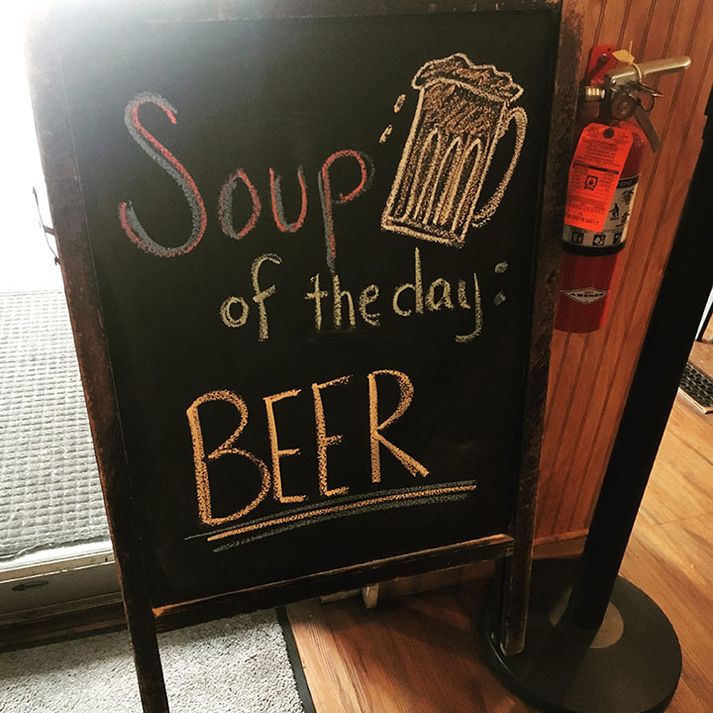 Soup
of the day:
BEER